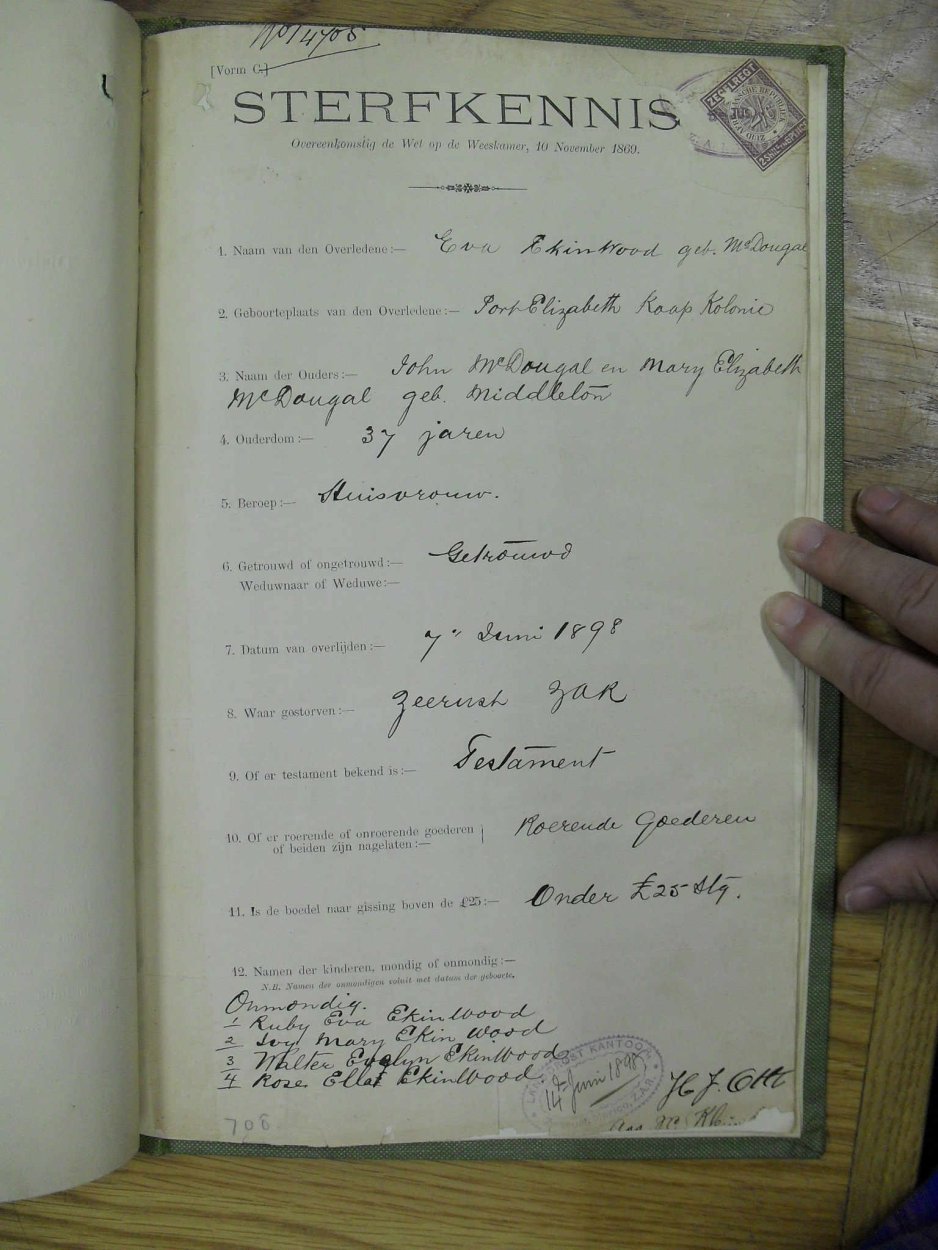 No 14705
[Vorm C.]
STERFKENNIS
Overeenkomstig de Wet op de Weeskamer, 10 November 1869.
ZEGELREGT
1. Naam van den Overledene:— Eva EkinWood geb. McDougal
2. Geboorteplaats van den Overledene:— Port Elizabeth Kaap Kolonie
3. Naam der Ouders:— John McDougal en Mary Elizabeth
McDougal geb. Middleton
4. Ouderdom:— 37 jaren
5. Beroep:— Huisvrouw.
6. Getrouwd of ongetrouwd:— Getrouwd
Weduwnaar of Weduwe:—
7. Datum van overlijden:— 7" Juni 1898
8. Waar gestorven:— Zeerust ZAR
9. Of er testament bekend is:— Testament
10. Of er roerende of onroerende goederen Roerende Goederen
of beiden zijn nagelaten:—
11. Is de boedel naar gissing boven de £25:— Onder £25 Stg.
12. Namen der kinderen, mondig of onmondig:—
N.B. Namen der onmondigen voluit met datum der geboorte.
Onmondig.
1 Ruby Eva EkinWood
2 Ivy Mary Ekin Wood
3 Walter Evelyn EkinWood
4 Rose Ella EkinWood
KANTOOR
14 Juni 1898
Z.A.R.
H J Ott
706